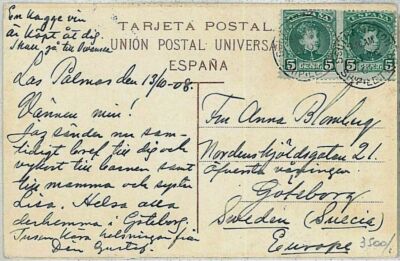 En kagge vin
är köpt åt dig.
Skall gå till
TARJETA POSTAL
UNIÓN POSTAL UNIVERSAL
ESPAÑA
5 CENT. 5
5 CENT. 5
Las Palmas den 13/10-08.
Vännen min!
Jag sänder nu sam-
tidigt bref till dig och
vykort till barnen samt
till mamma och syster
Lisa. Helsa alla
derhemma i Göteborg.
Tusen kära helsningar från
Din Gustaf.
Fru Anna Blomberg
Nordenskjöldsgatan 21.
Öfversta våningen
Göteborg
Sweden (Suecia)
Europe
3500/